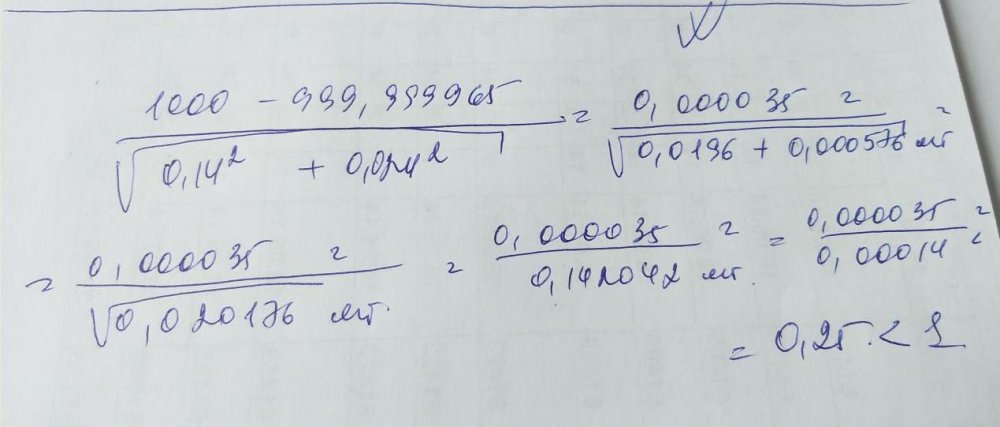 (1000 - 999,999965) / √(0,14² + 0,024²) = 0,000035 г / √(0,0196 + 0,000576) мг =
= 0,000035 г / √0,020176 мг. = 0,000035 г / 0,142042 мг. = 0,000035 г / 0,00014 г
= 0,25. < 1